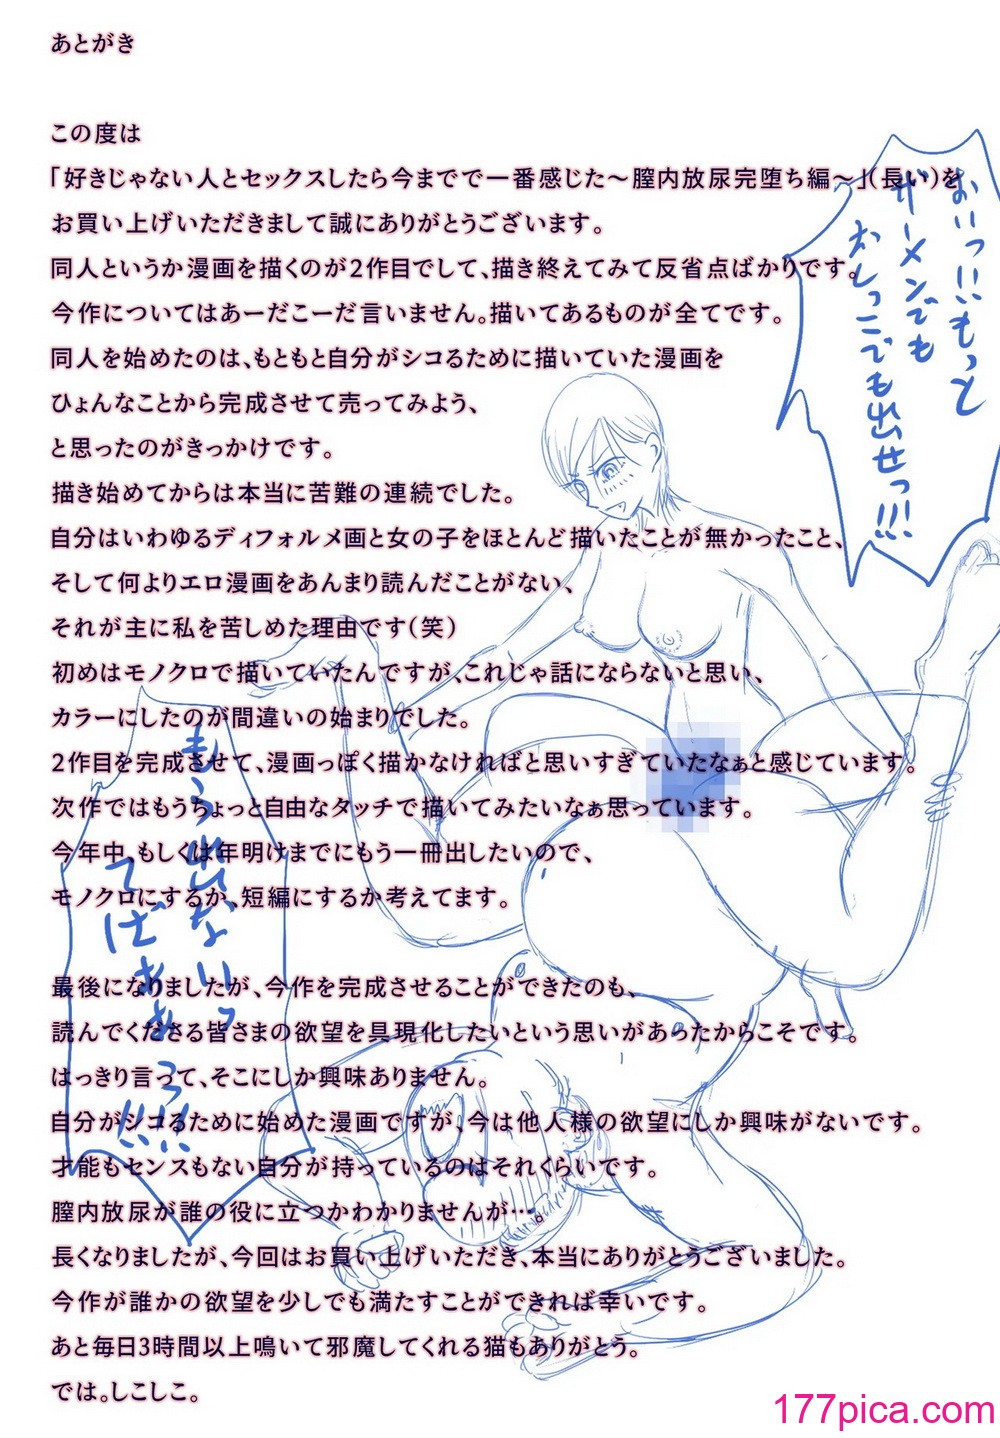 あとがき
この度は
「好きじゃない人とセックスしたら今までで一番感じた～膣内放尿完堕ち編～」(長い)を
お買い上げいただきまして誠にありがとうございます。
同人というか漫画を描くのが2作目でして、描き終えてみて反省点ばかりです。
今作についてはあーだこーだ言いません。描いてあるものが全てです。
同人を始めたのは、もともと自分がシコるために描いていた漫画を
ひょんなことから完成させて売ってみよう、
と思ったのがきっかけです。
描き始めてからは本当に苦難の連続でした。
自分はいわゆるディフォルメ画と女の子をほとんど描いたことが無かったこと、
そして何よりエロ漫画をあんまり読んだことがない、
それが主に私を苦しめた理由です(笑)
初めはモノクロで描いていたんですが、これじゃ話にならないと思い、
カラーにしたのが間違いの始まりでした。
2作目を完成させて、漫画っぽく描かなければと思いすぎていたなぁと感じています。
次作ではもうちょっと自由なタッチで描いてみたいなぁ思っています。
今年中、もしくは年明けまでにもう一冊出したいので、
モノクロにするか、短編にするか考えてます。
最後になりましたが、今作を完成させることができたのも、
読んでくださる皆さまの欲望を具現化したいという思いがあったからこそです。
はっきり言って、そこにしか興味ありません。
自分がシコるために始めた漫画ですが、今は他人様の欲望にしか興味がないです。
才能もセンスもない自分が持っているのはそれくらいです。
膣内放尿が誰の役に立つかわかりませんが…。
長くなりましたが、今回はお買い上げいただき、本当にありがとうございました。
今作が誰かの欲望を少しでも満たすことができれば幸いです。
あと毎日3時間以上鳴いて邪魔してくれる猫もありがとう。
では。しこしこ。
おいっ!!もっと
ザーメンでも
おしっこでも出せっ!!!
もう出ないっ
てばぁぁ
!!!
177pica.com